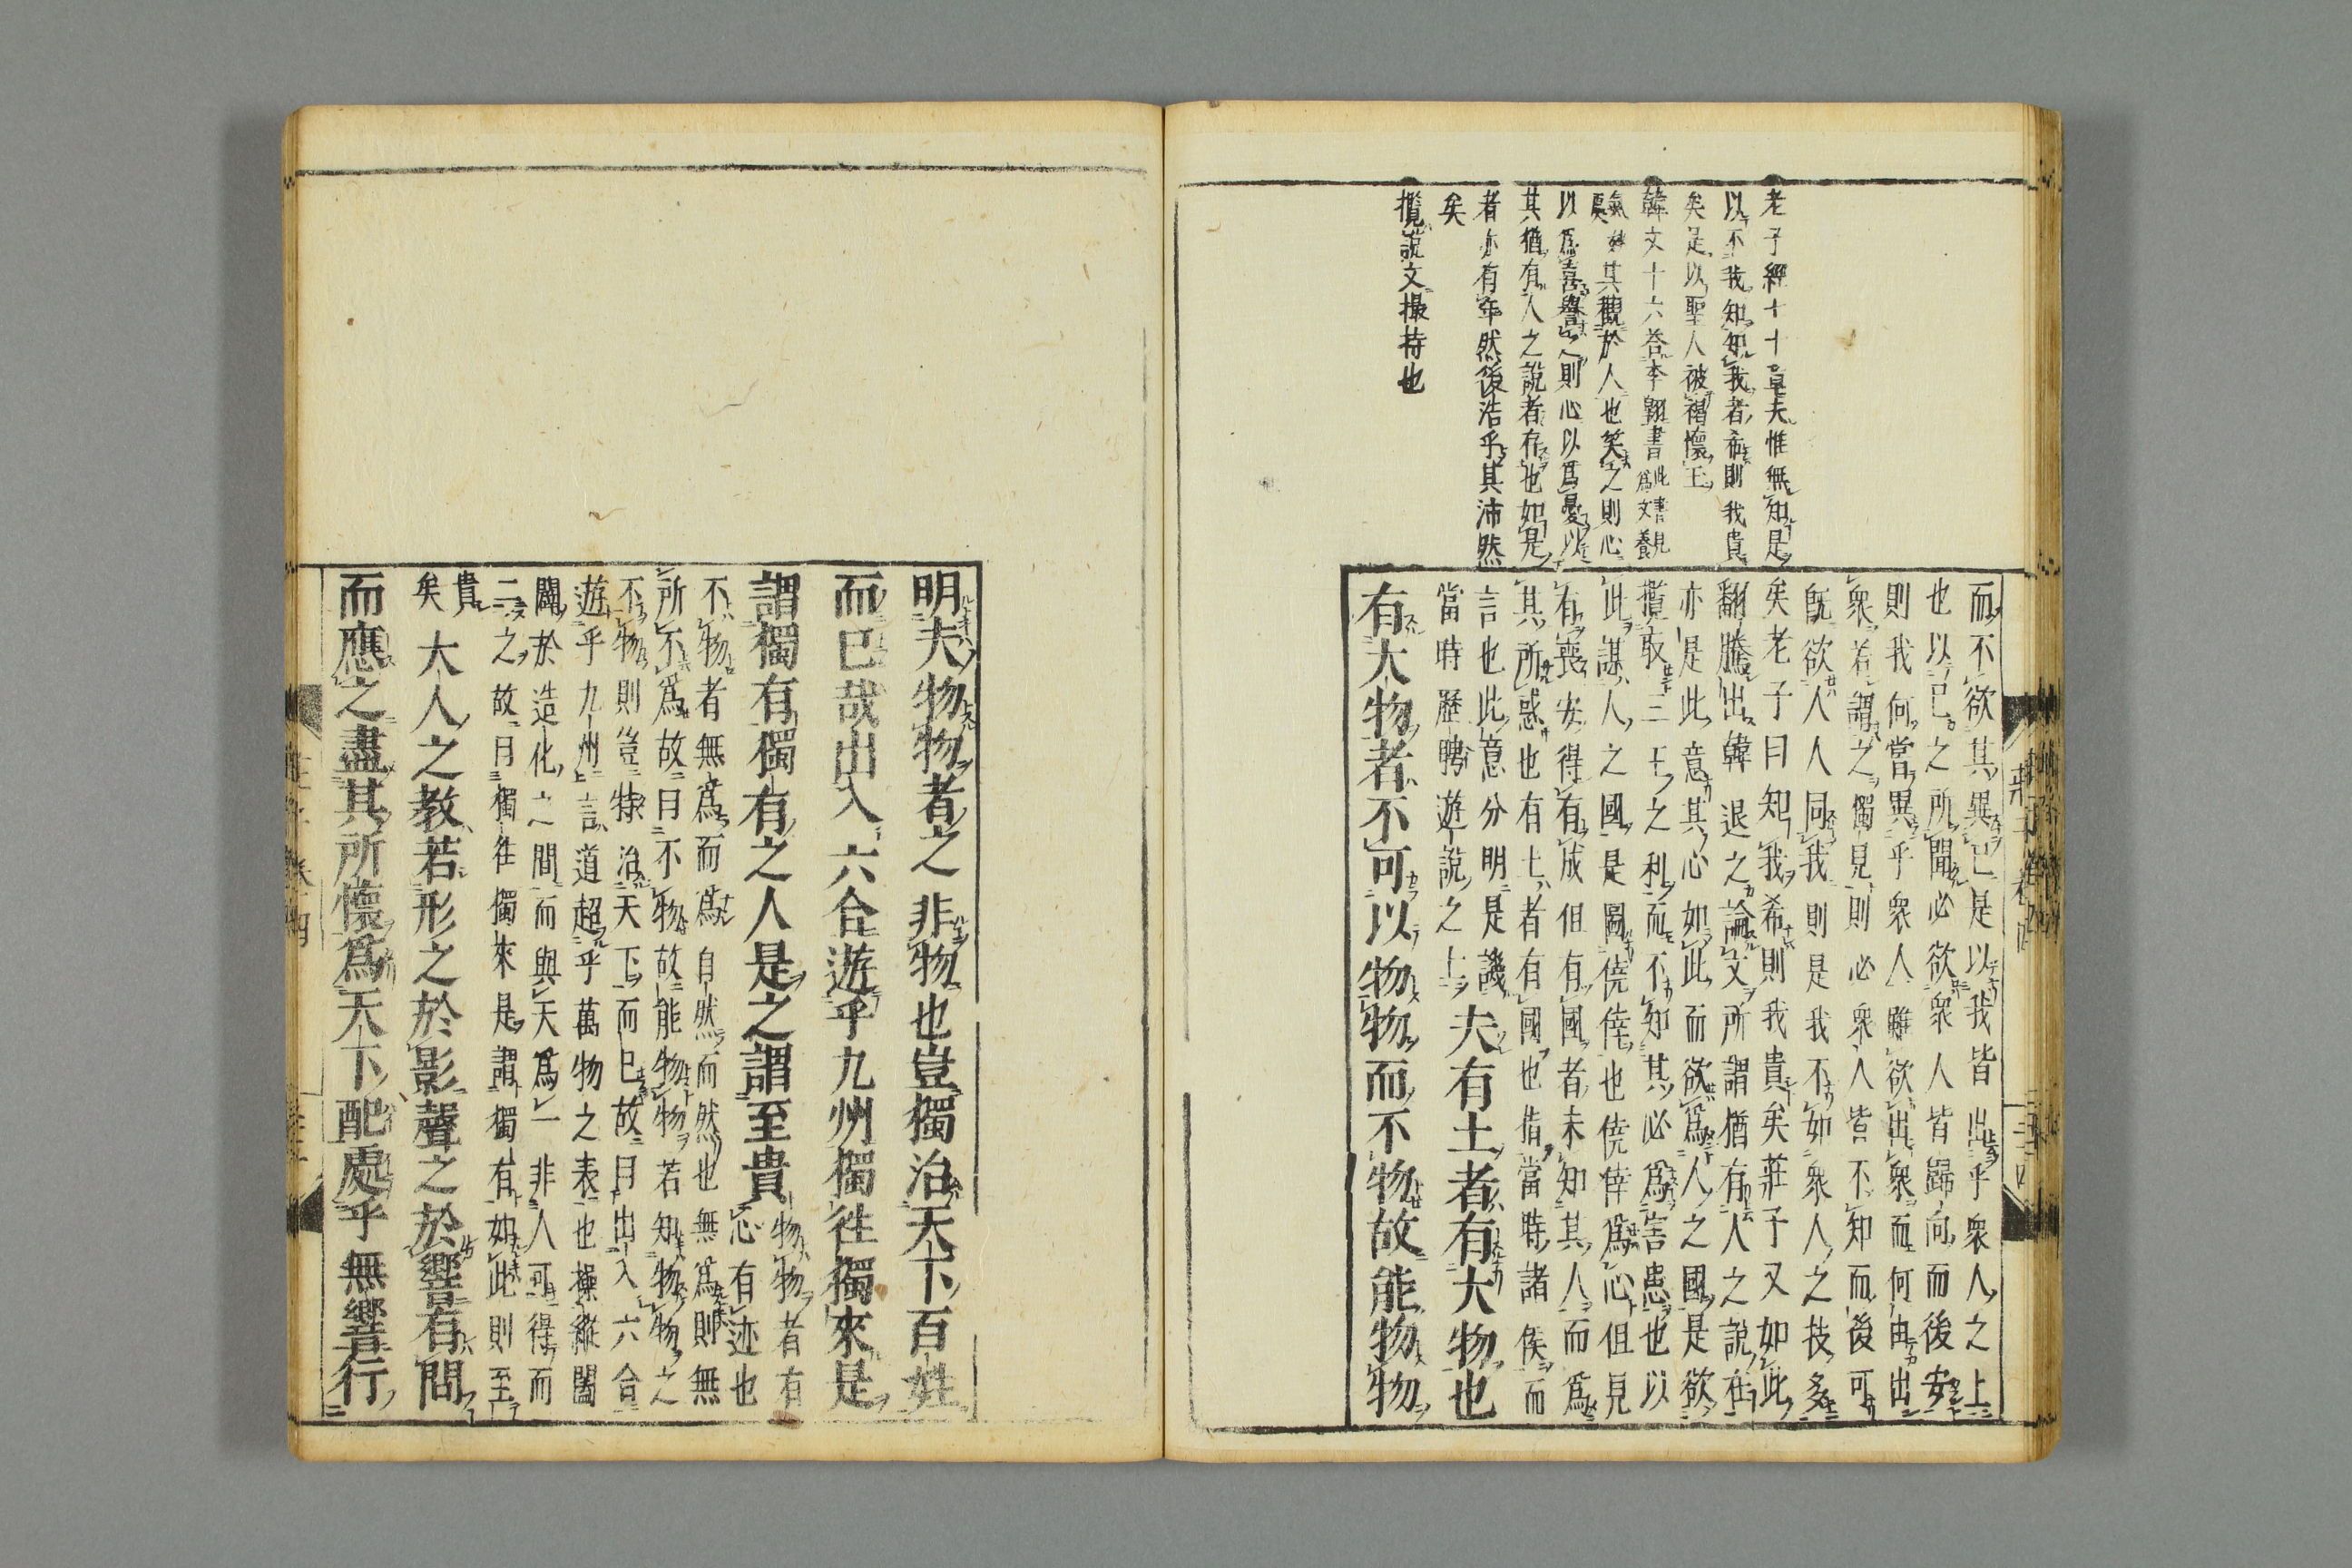 老子經七十章夫惟無知是
以不我知知我者希則我貴
矣是以聖人被褐懷玉
韓文十六答李翺書此書見爲文養
氣其觀於人也笑之則心
以爲喜譽之則心以爲憂以
其猶有人之說者存也如是
者亦有年然後浩乎其沛然
矣
攬說文撮持也
而不欲其異己是以我皆出乎衆人之上
也以己之所聞必欲衆人皆歸向而後安
則我何當異乎衆人雖欲出衆而何由出
衆若謂之獨見則必衆人皆不知而後可
既欲人人同我則是我不如衆人之技多
矣老子曰知我希則我貴矣莊子又如此
翻騰出韓退之論文所謂猶有人之說在
亦是此意其心如此而欲爲人之國是欲
攬取三王之利而不知其必爲害患也以
此謀人之國是圖僥倖也僥倖爲心但見
有喪安得有成但有國者未知其人而爲
其所惑也有土者有國也指當時諸侯而
言也此意分明是譏
當時歷聘遊說之士夫有土者有大物也
有大物者不可以物物而不物故能物物
明夫物物者之非物也豈獨治天下百姓
而已哉出入六合遊乎九州獨往獨來是
謂獨有獨有之人是之謂至貴物物者有心有迹也
不物者無爲而爲自然而然也無爲則無
所不爲故曰不物故能物物若知物物之
不物則豈特治天下而已故曰出入六合
遊乎九州言道超乎萬物之表也操縱闔
闢於造化之間而與天爲一非人可得而
二之故曰獨往獨來是謂獨有如此則至
貴矣大人之教若形之於影聲之於響有問
而應之盡其所懷爲天下配處乎無響行